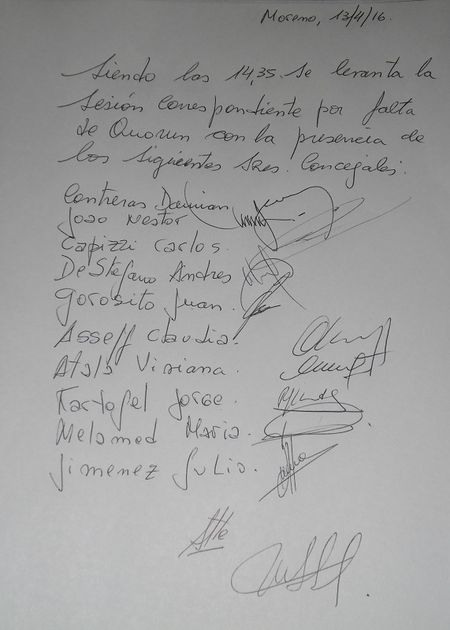 Moreno, 13/4/16.
Siendo las 14,35. se levanta la
Sesión Correspondiente por falta
de Quorun con la presencia de
los siguientes Sres. Concejales.
Contreras Damian
Joao Nestor
Capizzi Carlos.
DeStefano Andres
Gorosito Juan.
Asseff Claudia.
Atala Viviana.
Kartofel Jorge.
Melamed Maria.
Jimenez Julio.
Atte